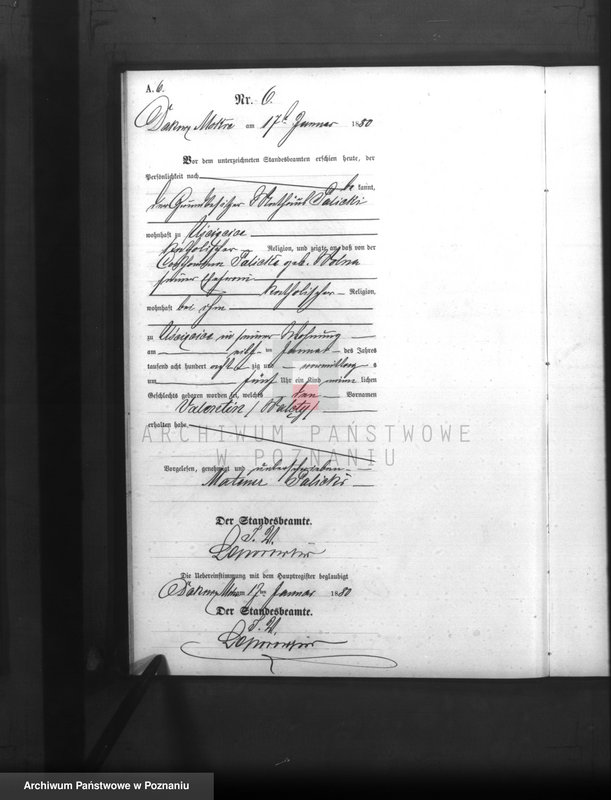 A. 6.
Nr. 6.
Dakowy Mokre am 17ten Januar 1880
Vor dem unterzeichneten Standesbeamten erschien heute, der
Persönlichkeit nach
be kannt,
der Grundbesitzer Palicki
wohnhaft zu
katholischer Religion, und zeigte an, daß von der
Palicka geb. Wolna
seiner Ehefrau
katholischer Religion,
wohnhaft bei ihm
zu in seiner Wohnung
am Januar des Jahres
tausend acht hundert acht zig und
um fünf Uhr ein Kind lichen
Geschlechts geboren worden sei, welches den Vornamen
Valentin / Walenty /
erhalten habe.
Vorgelesen, genehmigt und unterschrieben
Palicki
Der Standesbeamte.
I. V.
Die Uebereinstimmung mit dem Hauptregister beglaubigt
Dakowy Mokre am 17ten Januar 1880
Der Standesbeamte.
I. V.
ARCHIWUM PAŃSTWOWE
W POZNANIU
Archiwum Państwowe w Poznaniu